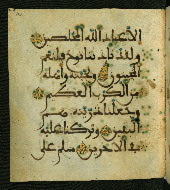 الا عباد الله المخلصين
ولقد نادىنا نوح فلنعم
المجيبون ونجينه واهله
من الكرب العظيم
وجعلنا ذريته هم
البقين وتركنا عليه
في الاخرين سلم على